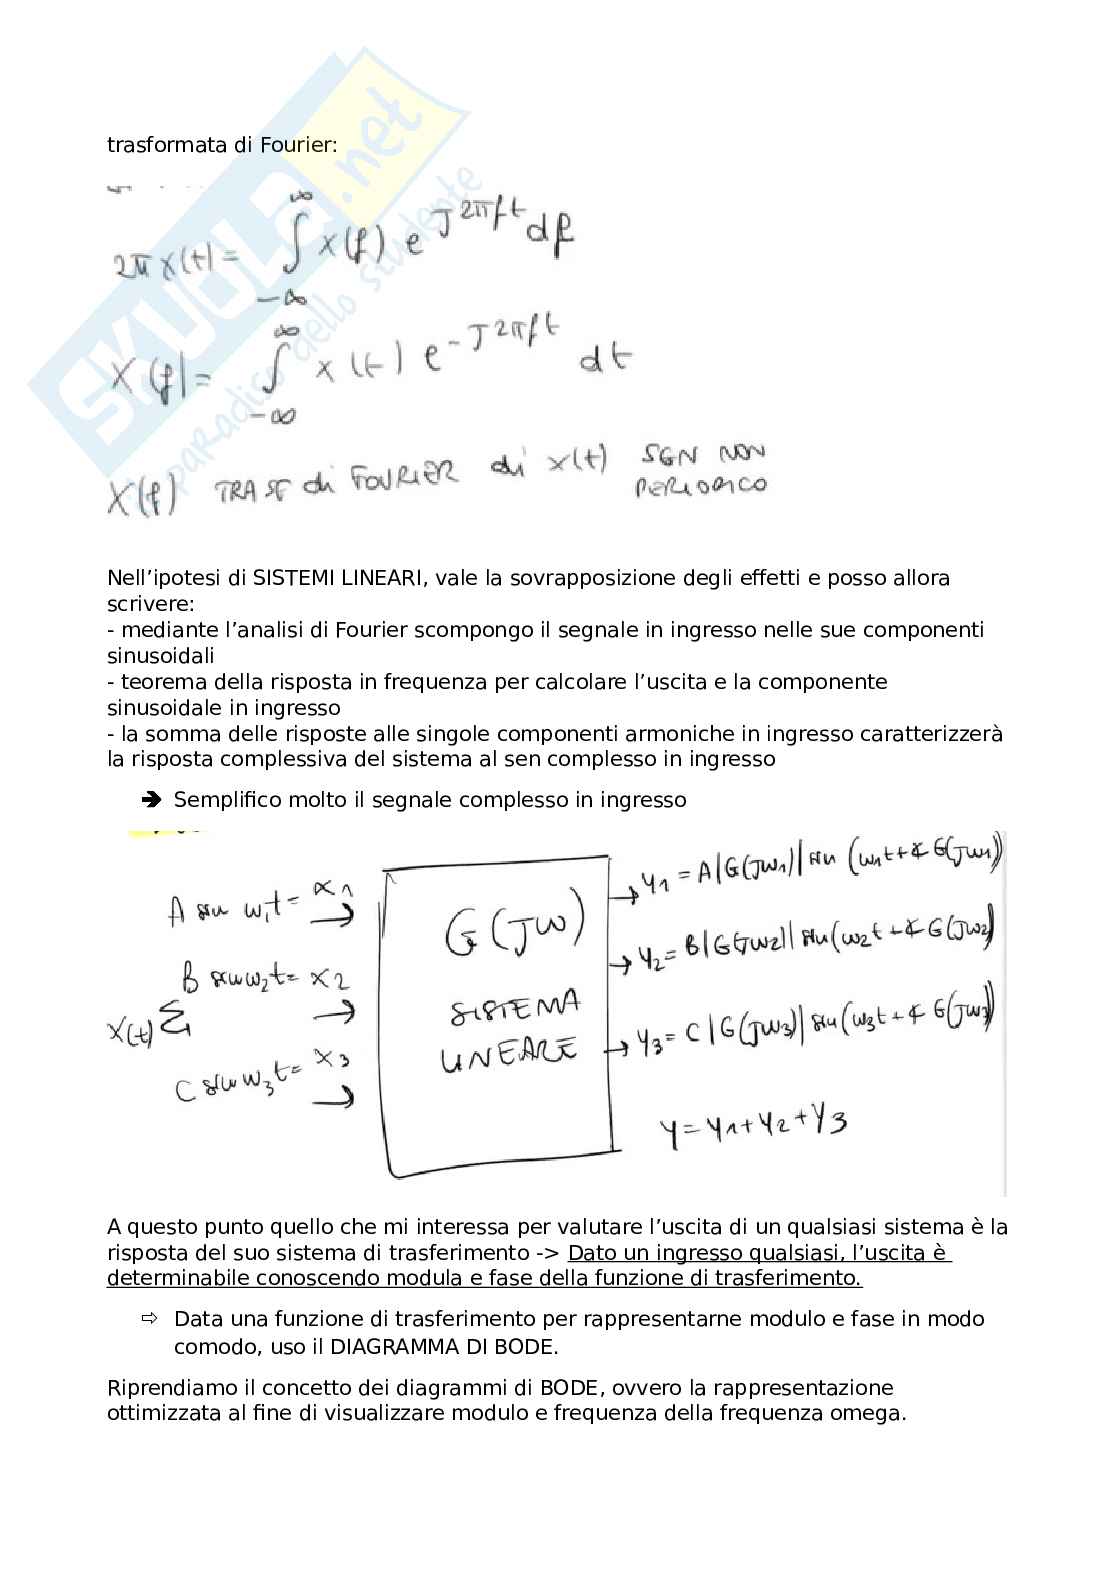 SKUOLA.net
il paradiso dello studente
trasformata di Fourier:
2π x(t) = ∫_{-∞}^{∞} X(f) e^{J2πft} df
X(f) = ∫_{-∞}^{∞} x(t) e^{-J2πft} dt
X(f) TRASF di FOURIER di x(t) SGN NON
PERIODICO
Nell’ipotesi di SISTEMI LINEARI, vale la sovrapposizione degli effetti e posso allora
scrivere:
- mediante l’analisi di Fourier scompongo il segnale in ingresso nelle sue componenti
sinusoidali
- teorema della risposta in frequenza per calcolare l’uscita e la componente
sinusoidale in ingresso
- la somma delle risposte alle singole componenti armoniche in ingresso caratterizzerà
la risposta complessiva del sistema al sen complesso in ingresso
➔ Semplifico molto il segnale complesso in ingresso
A sin w₁t = x₁
B sin w₂t = x₂
X(t) Σ
C sin w₃t = x₃
G(JW)
SISTEMA
LINEARE
→ y₁ = A|G(JW₁)| sin (w₁t + ∢ G(JW₁))
→ y₂ = B|G(JW₂)| sin (w₂t + ∢ G(JW₂))
→ y₃ = C|G(JW₃)| sin (w₃t + ∢ G(JW₃))
y = y₁ + y₂ + y₃
A questo punto quello che mi interessa per valutare l’uscita di un qualsiasi sistema è la
risposta del suo sistema di trasferimento -> Dato un ingresso qualsiasi, l’uscita è
determinabile conoscendo modula e fase della funzione di trasferimento.
⇨ Data una funzione di trasferimento per rappresentarne modulo e fase in modo
comodo, uso il DIAGRAMMA DI BODE.
Riprendiamo il concetto dei diagrammi di BODE, ovvero la rappresentazione
ottimizzata al fine di visualizzare modulo e frequenza della frequenza omega.